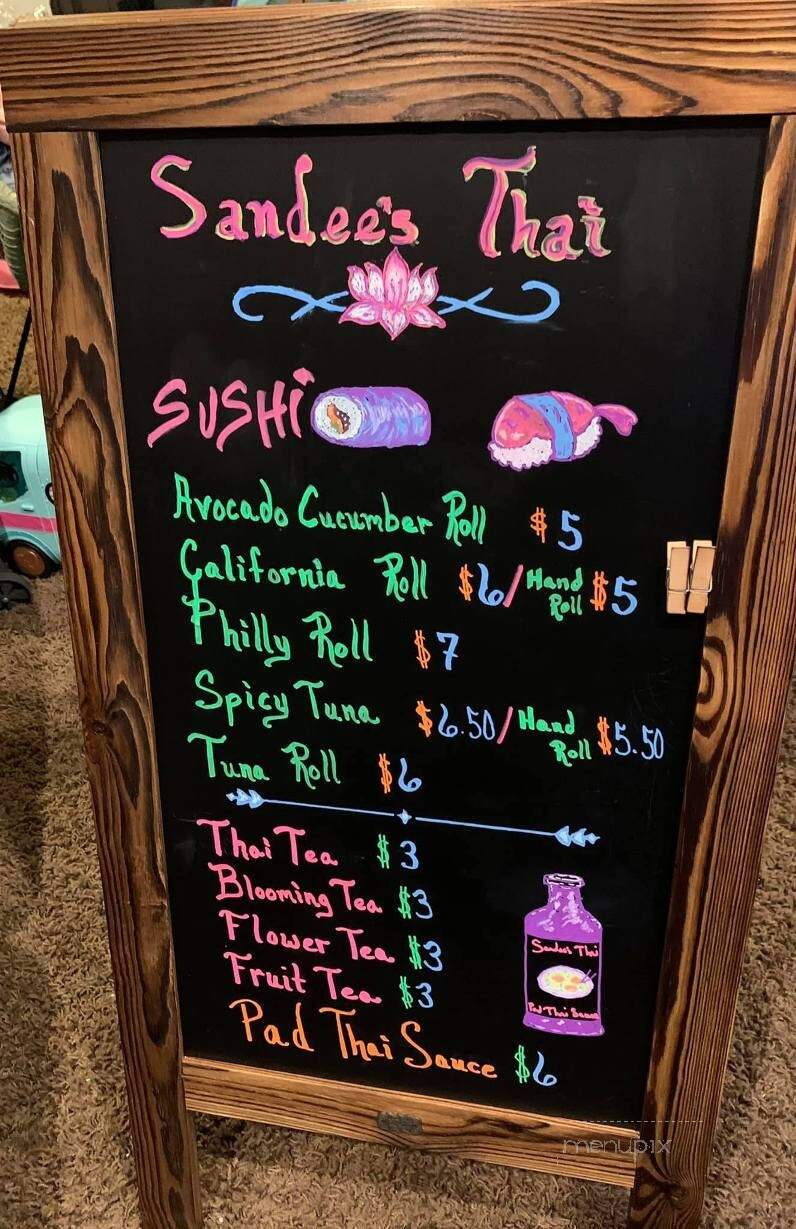 Sandee's Thai
SUSHi
Avocado Cucumber Roll $5
California Roll $6/Hand Roll $5
Philly Roll $7
Spicy Tuna $6.50/Hand Roll $5.50
Tuna Roll $6
Thai Tea $3
Blooming Tea $3
Flower Tea $3
Fruit Tea $3
Sandee's Thai
Pad Thai Sauce
Pad Thai Sauce $6
menupix